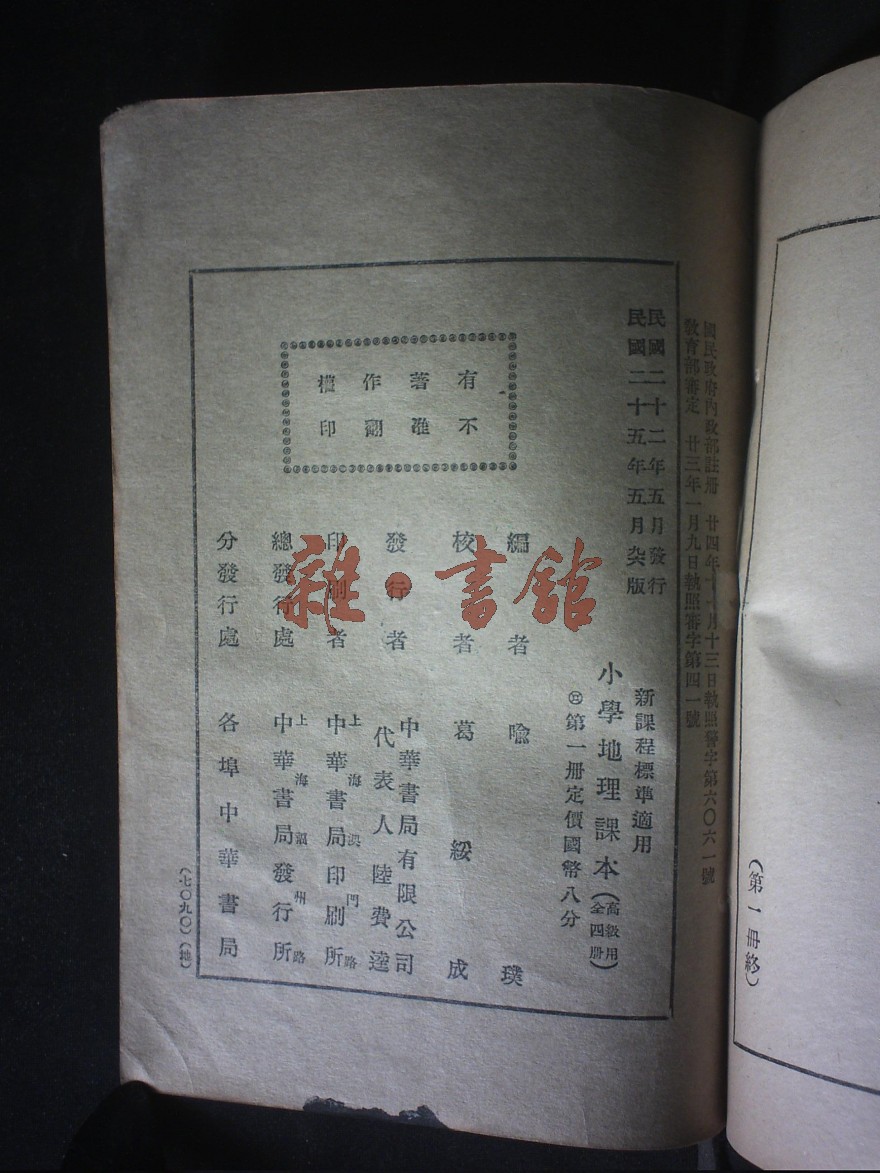 (第一冊終)
國民政府內政部註冊 廿四年十一月十三日執照警字第六〇六一號
教育部審定 廿三年一月九日執照審字第四一號
民國二十二年五月發行
民國二十五年五月 版
新課程標準適用
小學地理課本(高級用全四册)
第一册定價國幣八分
有著作權
不准翻印
編者 喻 璞
校者 葛綏成
發行者 中華書局有限公司
代表人陸費逵
印刷者 上海澳門路
中華書局印刷所
總發行處 上海福州路
中華書局發行所
分發行處 各埠中華書局
(七〇九〇)(地)
雜·書館